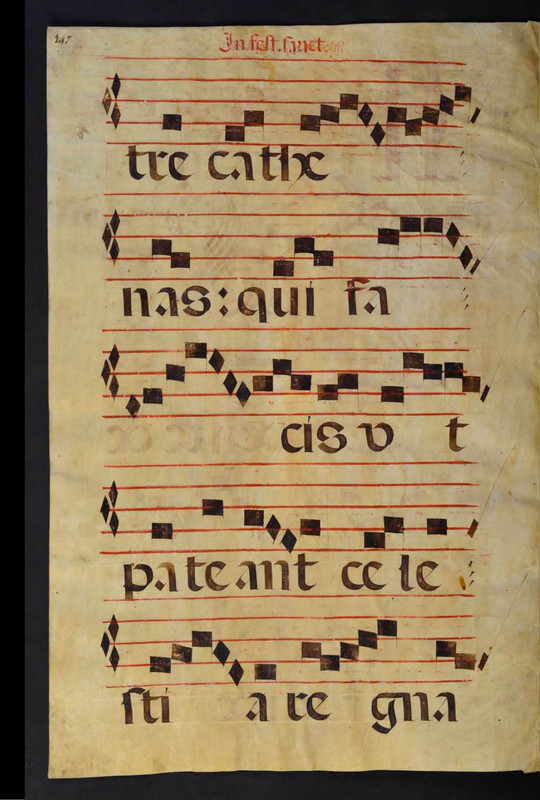 In fest. sanct
tre cathe
nas: qui fa
cis v t
pateant cele
sti a re gna